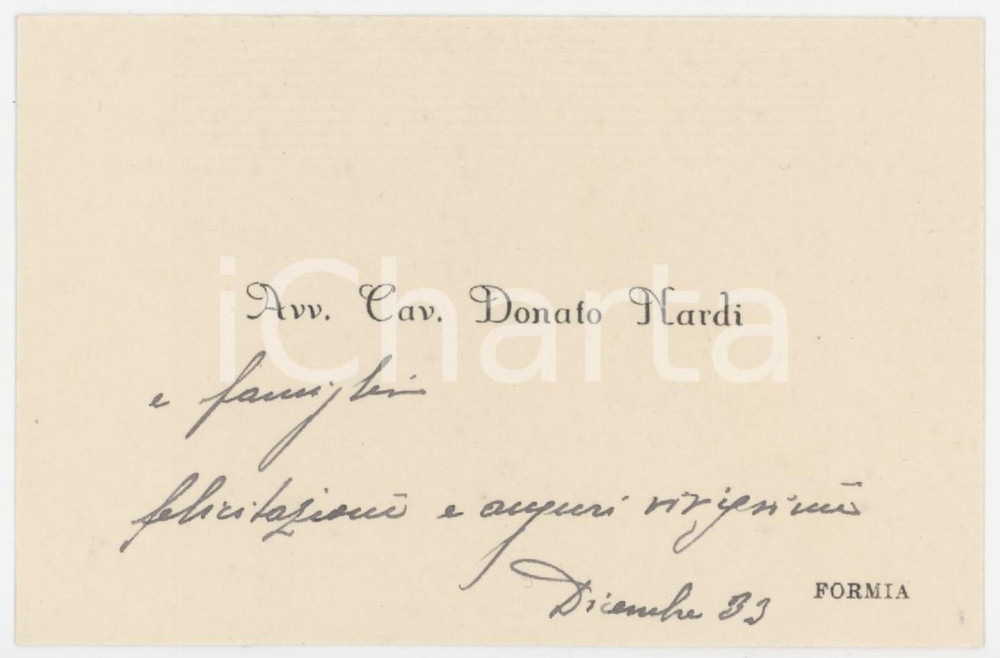 Avv. Cav. Donato Nardi
iCharta
e famiglia
felicitazioni e auguri vivissimi
Dicembre 33
FORMIA